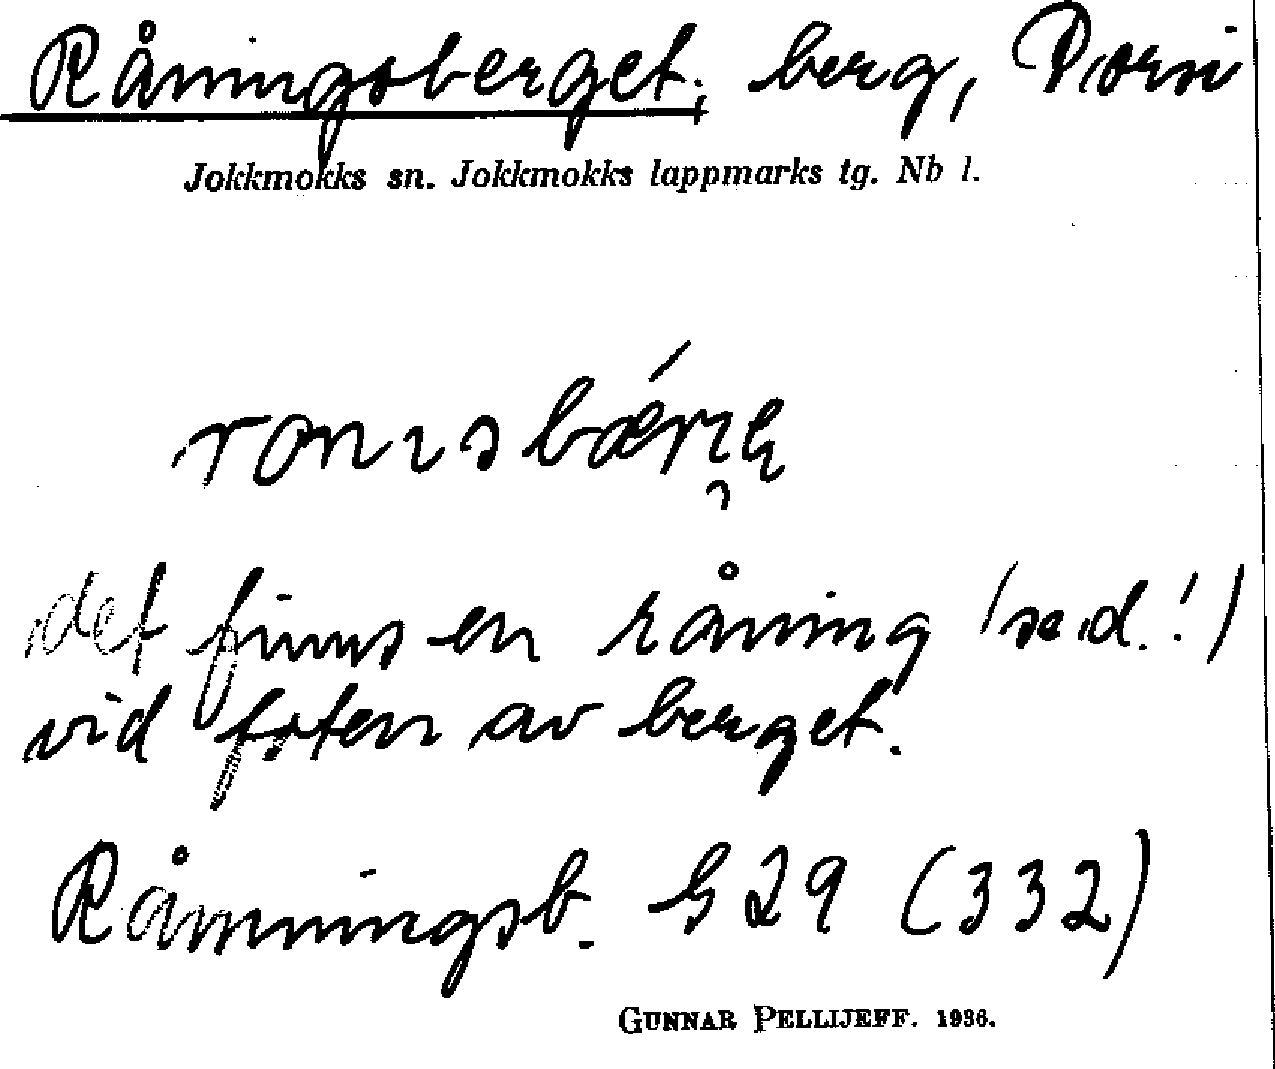 Råningsberget; berg, Porsi
Jokkmokks sn. Jokkmokks lappmarks tg. Nb l.
det finns en råning (se d.!)
vid foten av berget.
Rånningsb. G 29 (332)
GUNNAR PELLIJEFF. 1936.